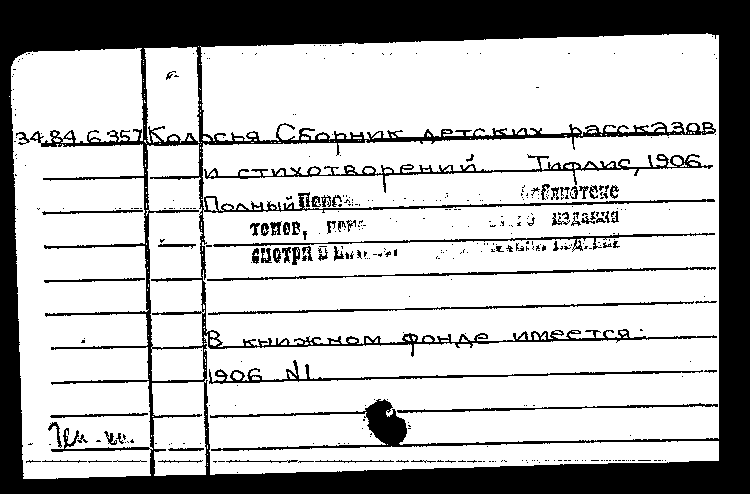 34.84.6.357 Колосья Сборник детских рассказов
и стихотворений. Тифлис, 1906.
Полный библиотеке
томов, издания
смотри в
В книжном фонде имеется:
1906 №1.